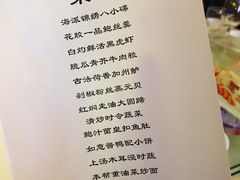 海派锦绣八小碟
花胶一品鲍丝羹
白灼鲜活黑虎虾
脆瓜青芥牛肉粒
古法荷香加州鲈
剁椒粉丝蒸元贝
红焖走油大圆蹄
清炒时令蔬菜
鲍汁菌皇扣鱼肚
如意酱鸭配小饼
上汤木耳浸时蔬
本帮重油菜炒面